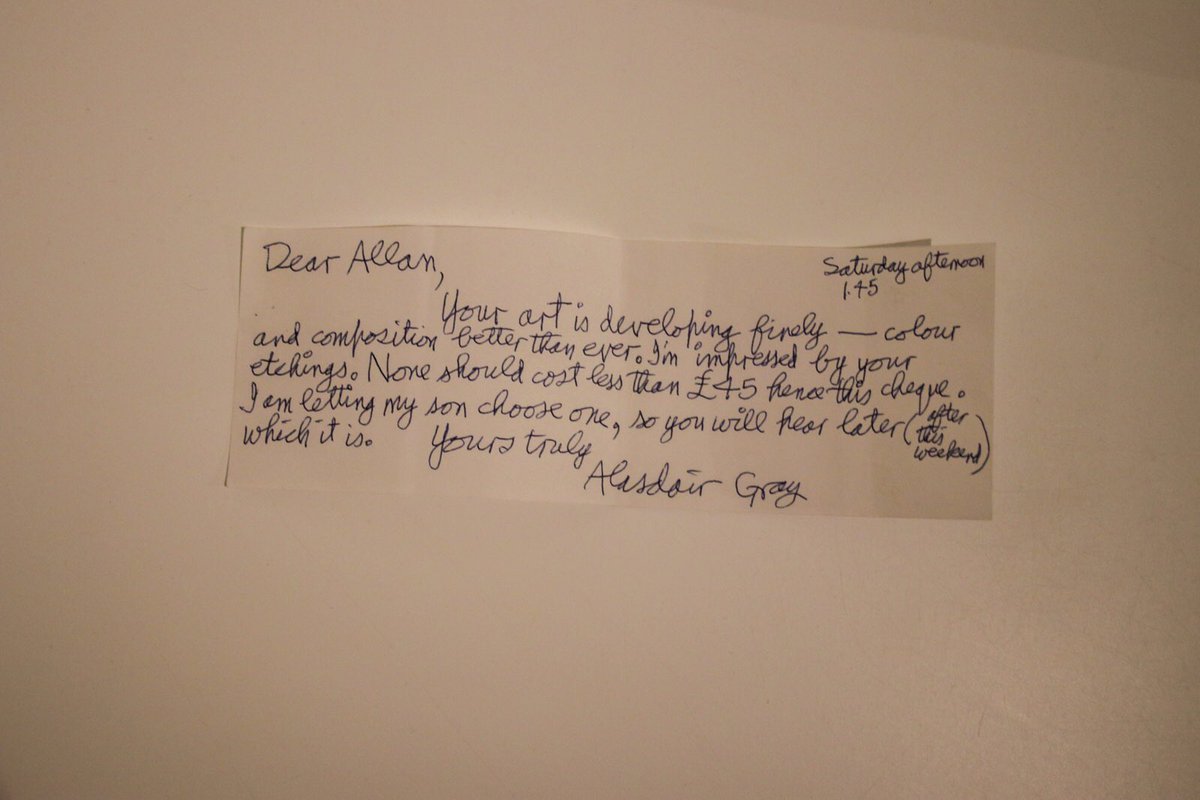 Dear Allan,
Saturday afternoon
1.45
Your art is developing finely — colour
and composition better than ever. I'm impressed by your
etchings. None should cost less than £45 hence this cheque.
I am letting my son choose one, so you will hear later (after
this
weekend)
which it is. Yours truly
Alasdair Gray